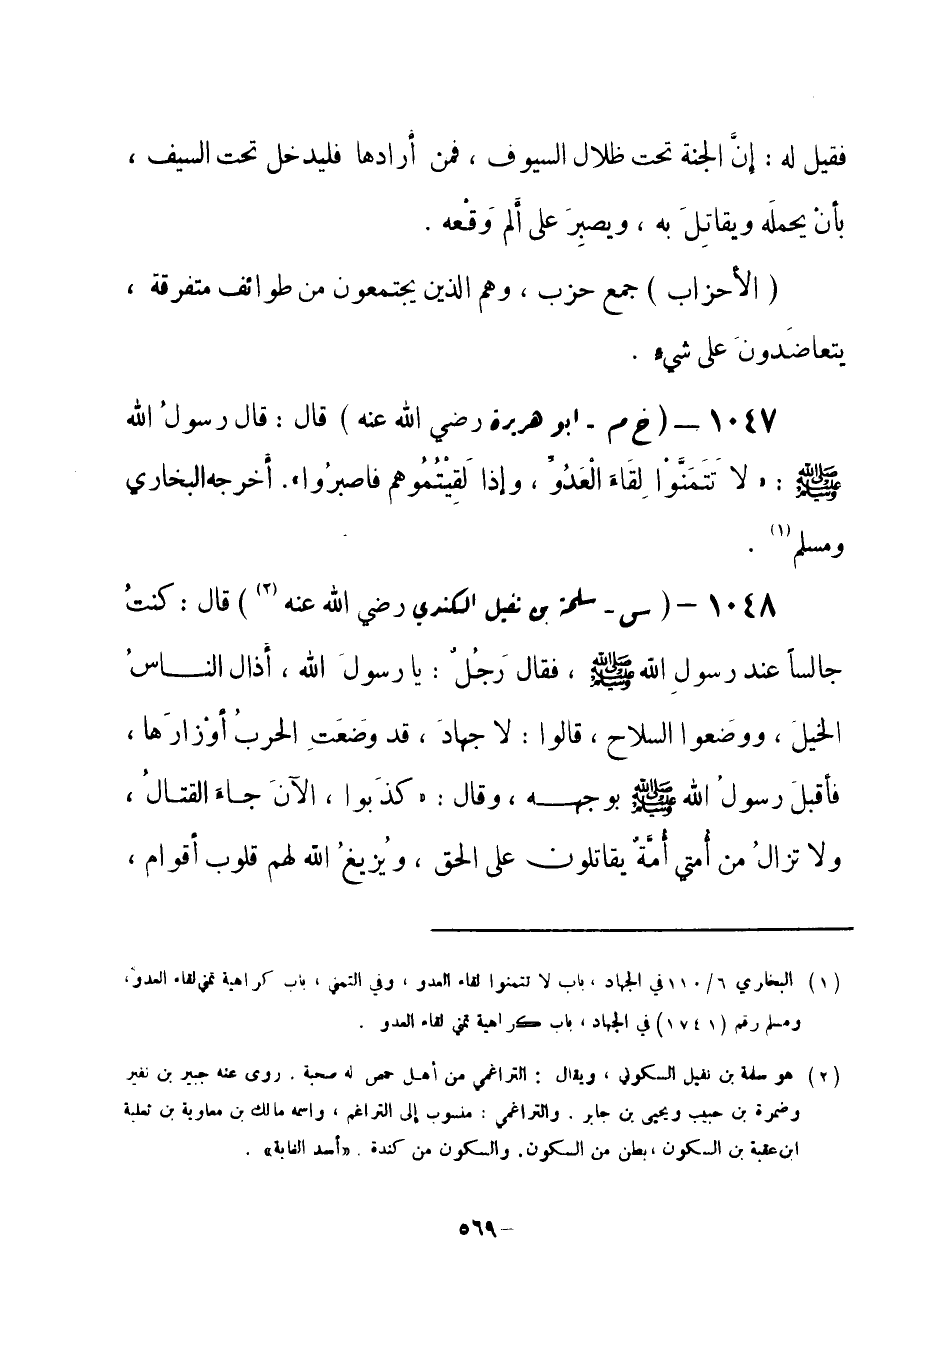 فقيل له : إنَّ الجنة تحت ظلال السيوف ، فمن أرادها فليدخل تحت السيف ،
بأنْ يحملَه ويقاتِلَ به ، ويصبِرَ على ألم وَقْعه .
( الأحزاب ) جمع حزب ، وهم الذين يجتمعون من طوائف متفرقة ،
يتعاضَدونَ على شيء .
١٠٤٧ – ( خ م - ابو هريرة رضي الله عنه ) قال : قال رسولُ الله
ﷺ : « لا تَتَمَنَّوْا لِقَاءَ الْعَدُوِّ ، وإذا لَقِيْتُمُوهم فاصبرُوا» . أخرجه البخاري
ومسلم (١) .
١٠٤٨ – ( س - سلمة بن نفيل الكندي رضي الله عنه (٢) ) قال : كنتُ
جالساً عند رسولِ الله ﷺ ، فقال رَجُلٌ : يا رسولَ الله ، أذال الناسُ
الخيلَ ، ووضَعوا السلاح ، قالوا : لا جهادَ ، قد وضَعَتِ الحربُ أوْزارَها ،
فأقبلَ رسولُ الله ﷺ بوجهه ، وقال : « كذَبوا ، الآنَ جاءَ القتالُ ،
ولا تزالُ من أُمتي أُمَّةٌ يقاتلون على الحق ، ويُزيغُ الله لهم قلوب أقوام ،
(١) البخاري ٦/١١٠ في الجهاد ، باب لا تتمنوا لقاء العدو ، وفي التمني ، باب كراهية تمني لقاء العدو ،
ومسلم رقم (١٧٤١) في الجهاد ، باب كراهية تمني لقاء العدو .
(٢) هو سلمة بن نفيل السكوني ، ويقال : التراغمي من أهل حمص له صحبة . روى عنه جبير بن نفير
وضمرة بن حبيب ويحيى بن جابر . والتراغمي : منسوب إلى التراغم ، واسمه مالك بن معاوية بن ثعلبة
ابن عقبة بن السكون ، بطن من السكون . والسكون من كندة . «أسد الغابة» .
– ٥٦٩